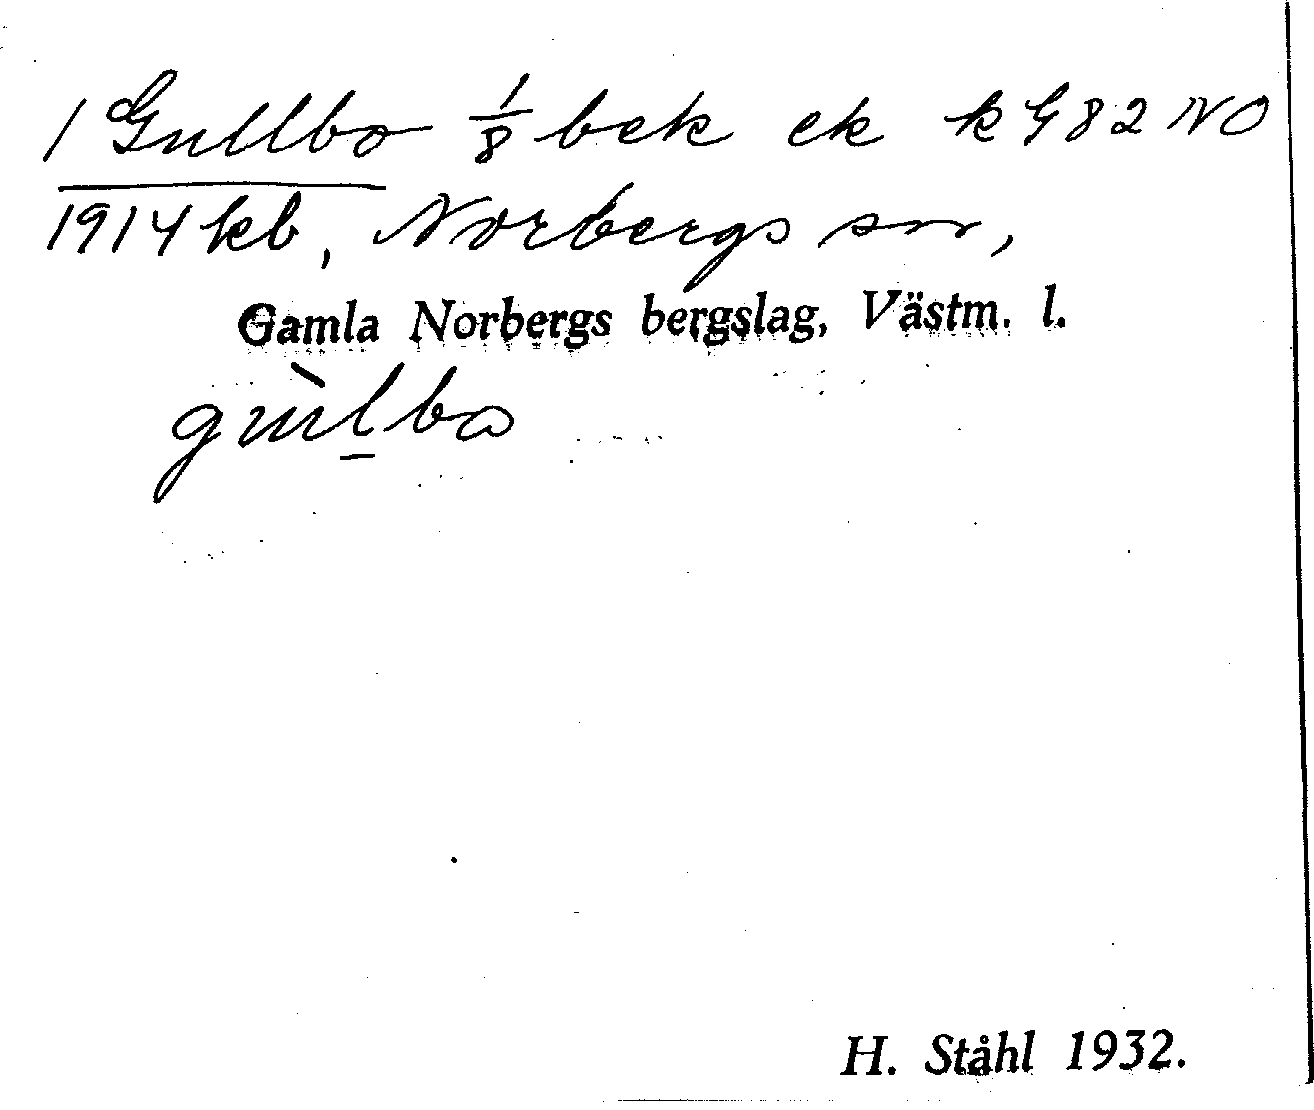 1 Gullbo 1/8 bek ek k G 82 NO
1914 kb, Norbergs sn,
Gamla Norbergs bergslag, Västm. l.
gùl̲bo
H. Ståhl 1932.